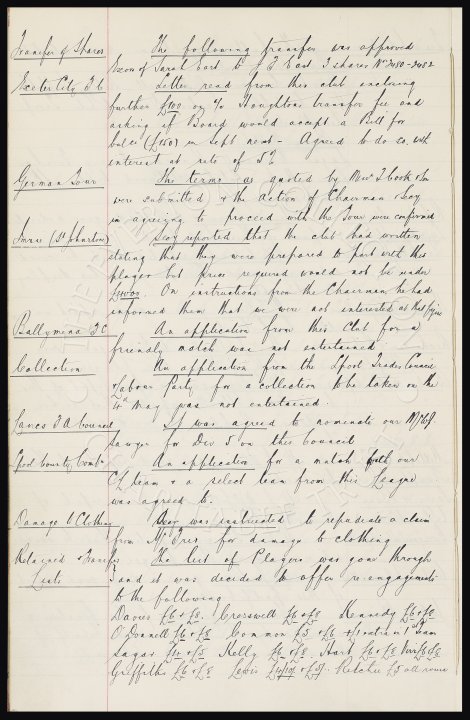 Transfer of Shares The following transfer was approved
Exors of Sarah Cart to J F Cast 3 shares No 2480-2482
Exeter City F C Letter read from this club enclosing
further £100 on a/c Houghtons transfer fee and
asking if Board would accept a Bill for
balce (£150) in Sept next - Agreed to do so with
interest at rate of 5%
German Tour The terms as quoted by Messrs T Cook & Son
were submitted & the action of Chairman & Secy
in agreeing to proceed with the Tour were confirmed
(St Johnston) Secy reported that the club had written
stating that they were prepared to part with this
player but price required would not be under
£4000. On instructions from the Chairman he had
informed them that we were not interested at that figure
Ballymena F C An application from this Club for a
friendly match was not entertained
Collection An application from the Lpool Trades Council
& Labour Party for a collection to be taken on the
4th May was not entertained.
Lancs F A Council It was agreed to nominate our
Sawyer for Div 5 on this Council
Lpool County Combn An application for a match with our
C L team & a select team from this League
was agreed to.
Damage to Clothing Secy was instructed to repudiate a claim
from Mr for damage to clothing
Retained & Transfer The list of Players was gone through
Lists and it was decided to offer re-engagements
to the following
Davies £6 & £8. Cresswell £6 & £8 Kennedy £6 & £8
O'Donnell £6 & £8 Common £5 & £6 & £1 extra in 1st Team
£4 & £5 Kelly £6 & £8. Hart £6 & £8
Griffiths £6 & £8 Lewis Ritchie £5 all round